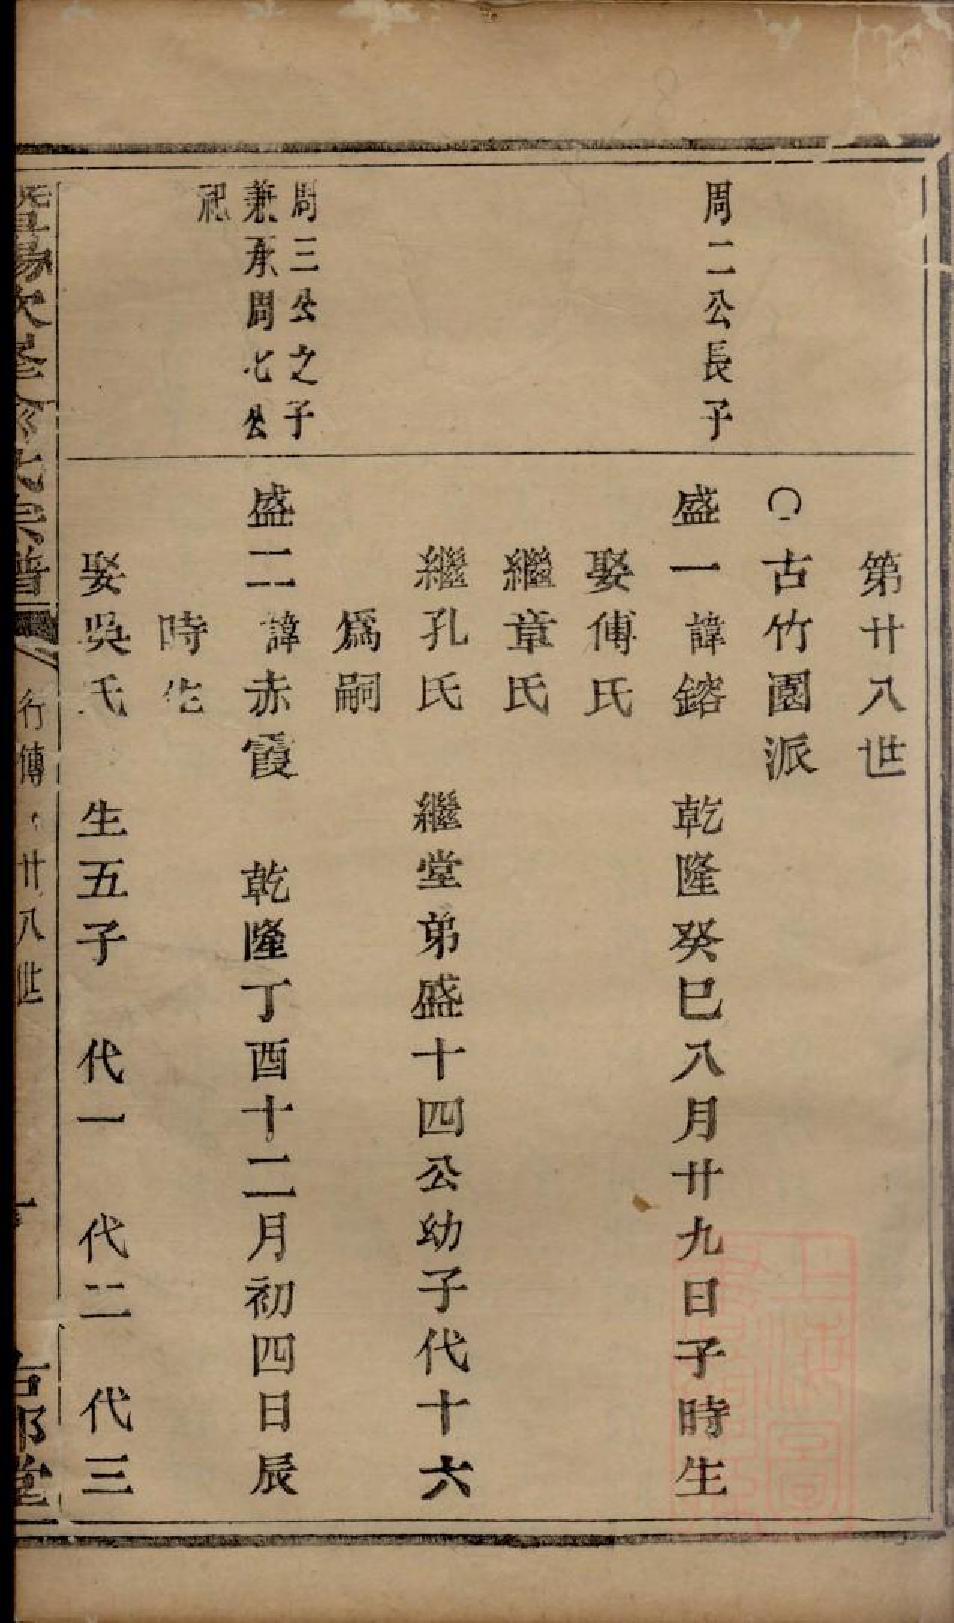 第廿八世
○古竹園派
周二公長子
盛一諱鎔 乾隆癸巳八月廿九日子時生
娶傅氏
繼章氏
繼孔氏 繼堂弟盛十四公幼子代十六
爲嗣
周三公之子
兼承周七公
祀
盛二諱赤霞 乾隆丁酉十二月初四日辰
時生
娶吳氏 生五子 代一 代二 代三
宗譜
行傳 廿八世
堂